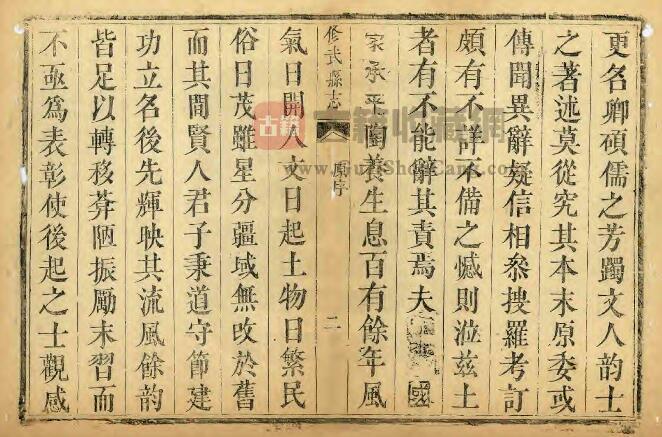 更名卿碩儒之芳躅文人韵士
之著述莫從究其本末原委或
傳聞異辭疑信相叅搜羅考訂
頗有不詳不備之憾則涖兹土
者有不能辭其責焉夫國
家承平陶養生息百有餘年風
修武縣志
原序
二
氣日開人文日起土物日繁民
俗日茂雖星分疆域無改於舊
而其間賢人君子秉道守節建
功立名後先輝映其流風餘韵
皆足以轉移陋振勵末習而
不亟爲表彰使後起之士觀感
古籍
古籍收藏網